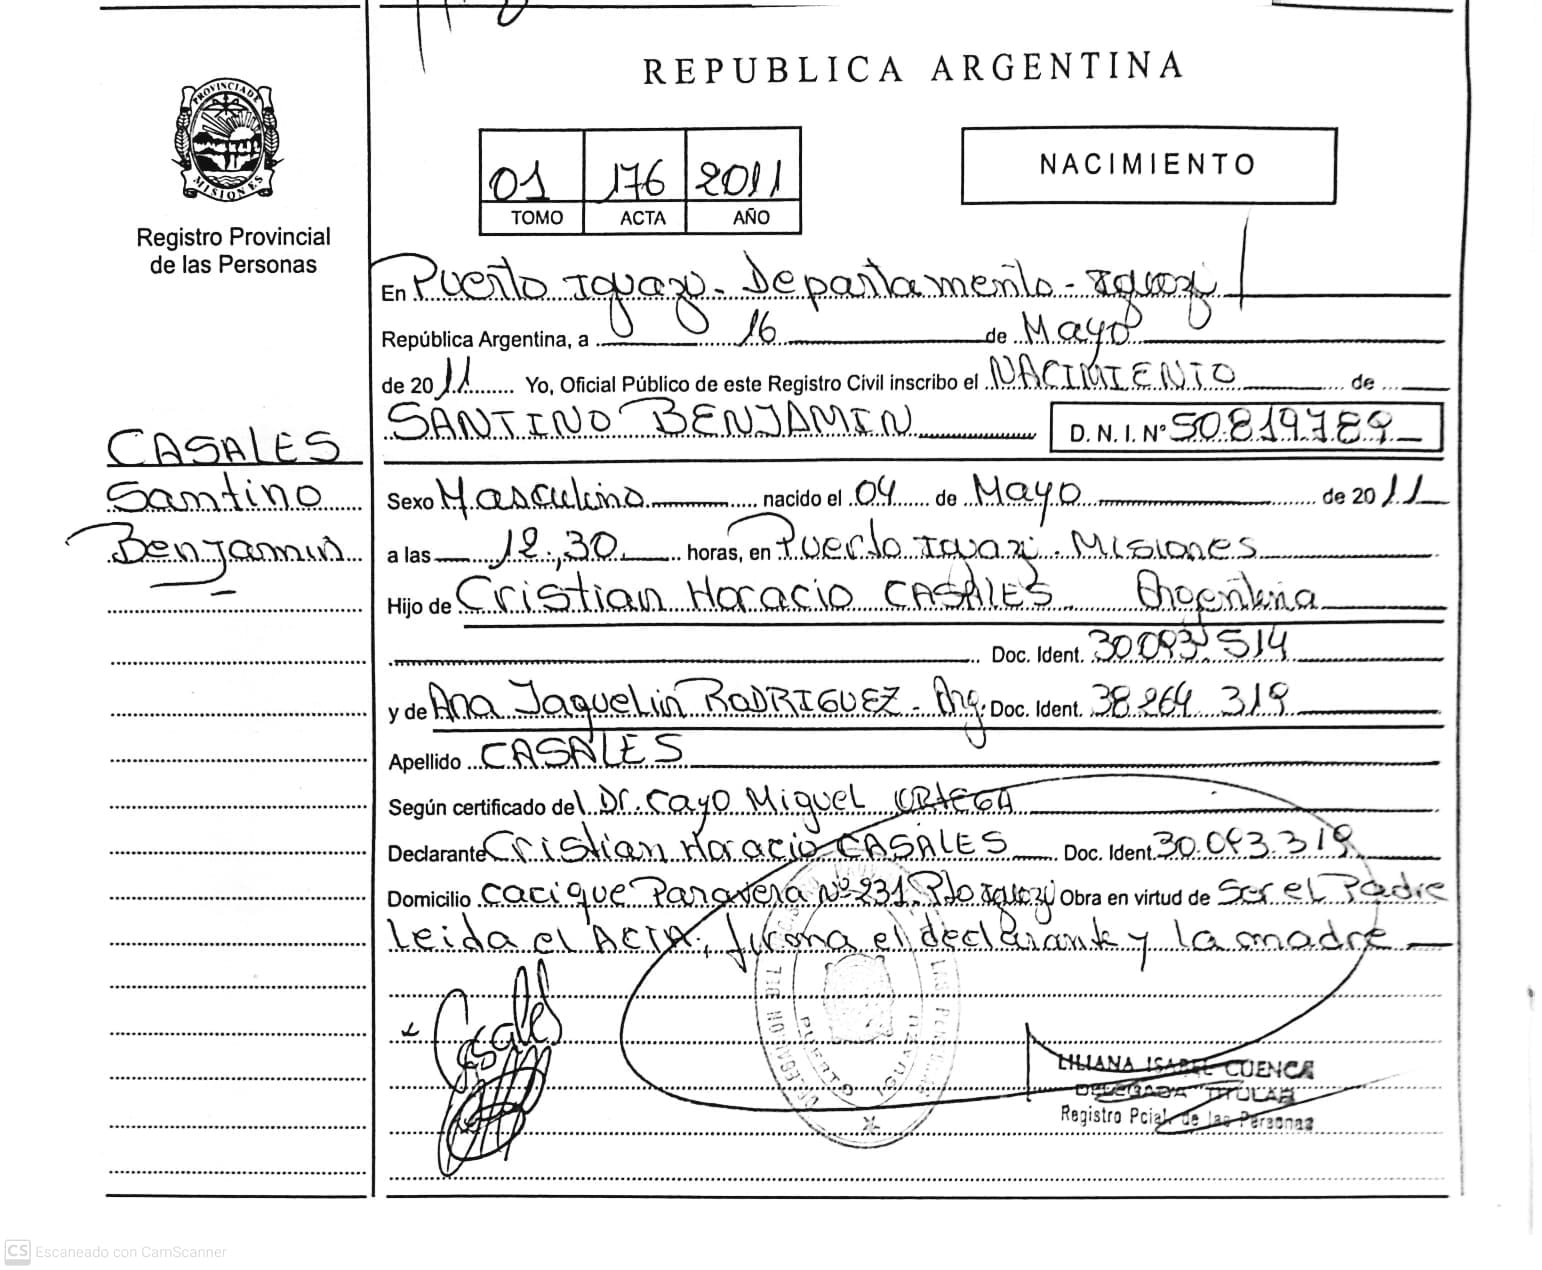 REPUBLICA ARGENTINA
PROVINCIA DE MISIONES
Registro Provincial
de las Personas
01 176 2011
TOMO ACTA AÑO
NACIMIENTO
En Puerto Iguazu - Departamento - Iguazú
República Argentina, a 16 de Mayo
de 2011 Yo, Oficial Público de este Registro Civil inscribo el NACIMIENTO de
SANTINO BENJAMIN D. N. I. Nº 50.819.789
CASALES
Santino
Benjamin
Sexo Masculino nacido el 04 de Mayo de 2011
a las 12,30 horas, en Puerto Iguazú. Misiones
Hijo de Cristian Horacio CASALES Argentina
Doc. Ident. 30.093.514
y de Ana Jaquelin RODRIGUEZ - Arg. Doc. Ident. 38.264.319
Apellido CASALES
Según certificado del Dr. Cayo Miguel ORTEGA
Declarante Cristian Horacio CASALES Doc. Ident. 30.093.319
Domicilio cacique Paravera Nº 231. Pto Iguazú Obra en virtud de Ser el Padre
leida el ACTA, firma el declarante y la madre
Casales
PUERTO IGUAZU
LILIANA ISABEL CUENCA
DELEGADA TITULAR
Registro Pcial. de las Personas
CS Escaneado con CamScanner